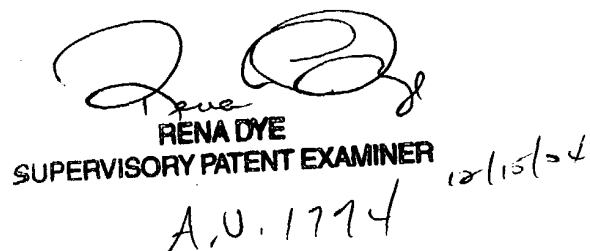 Rena Dye
RENA DYE
SUPERVISORY PATENT EXAMINER
12/15/04
A.U. 1774